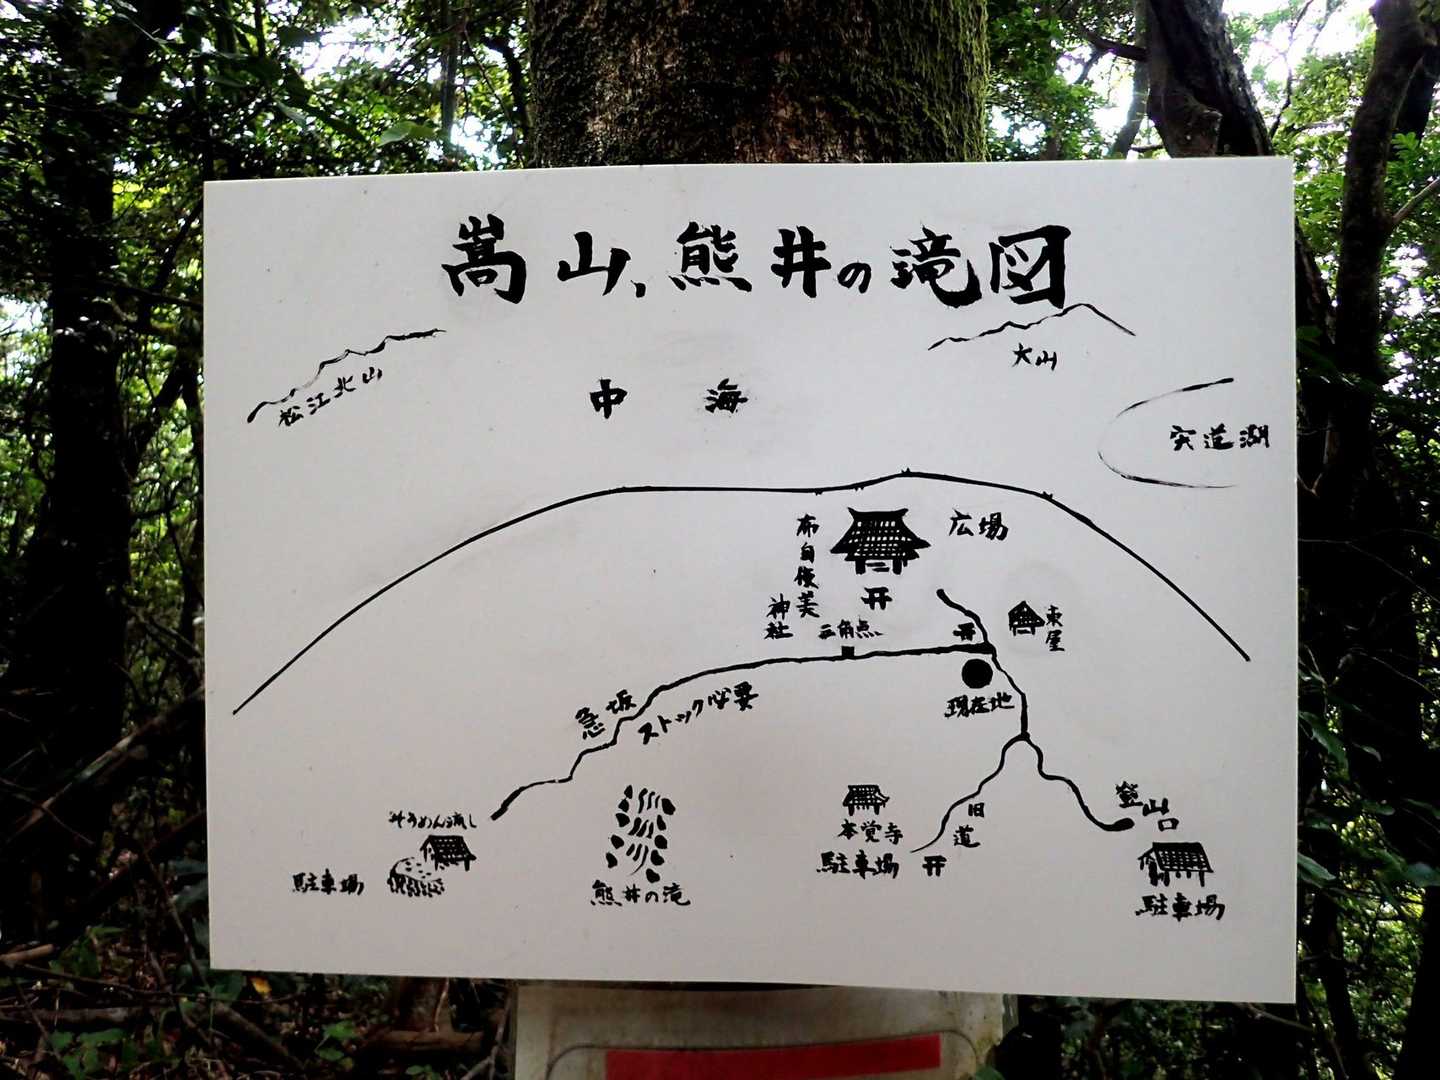 嵩山、熊井の滝図
松江北山
中海
大山
宍道湖
布自伎美
神社
広場
三角点
東屋
現在地
急坂
ストック必要
登山口
旧道
そうめん流し
駐車場
熊井の滝
本覚寺
駐車場
駐車場